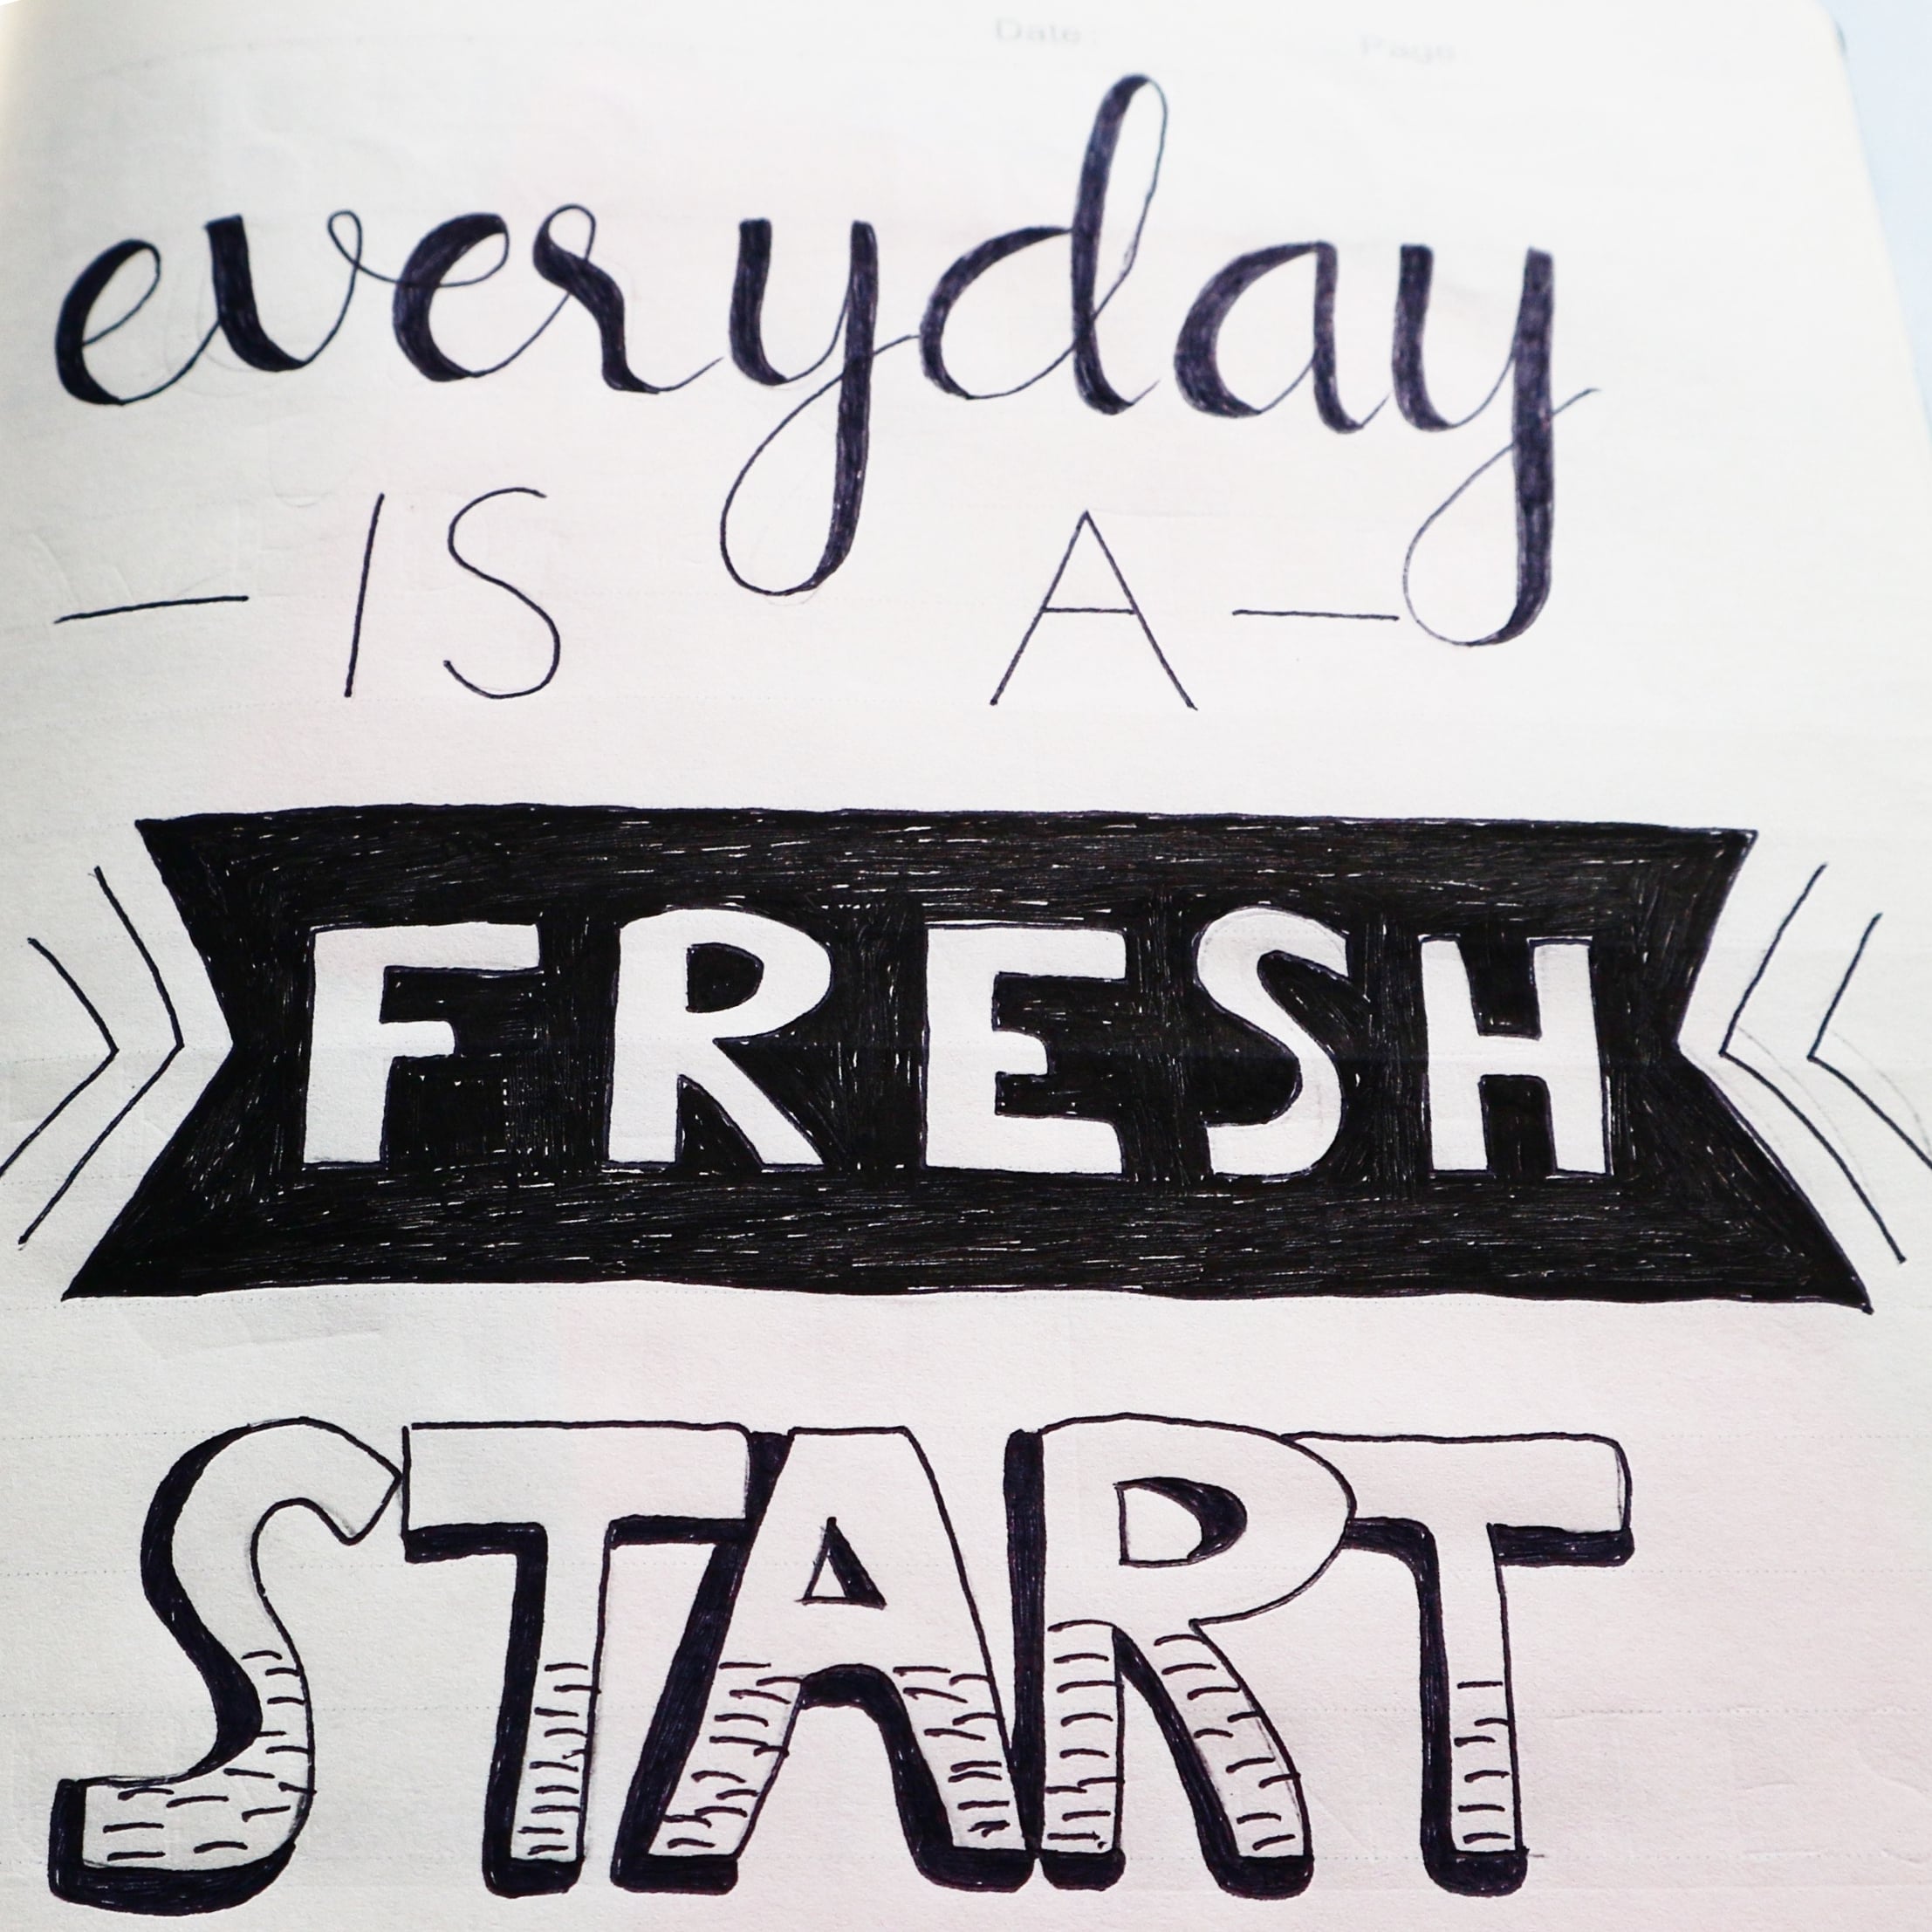 Date: Page
everyday
— IS A —
FRESH
START